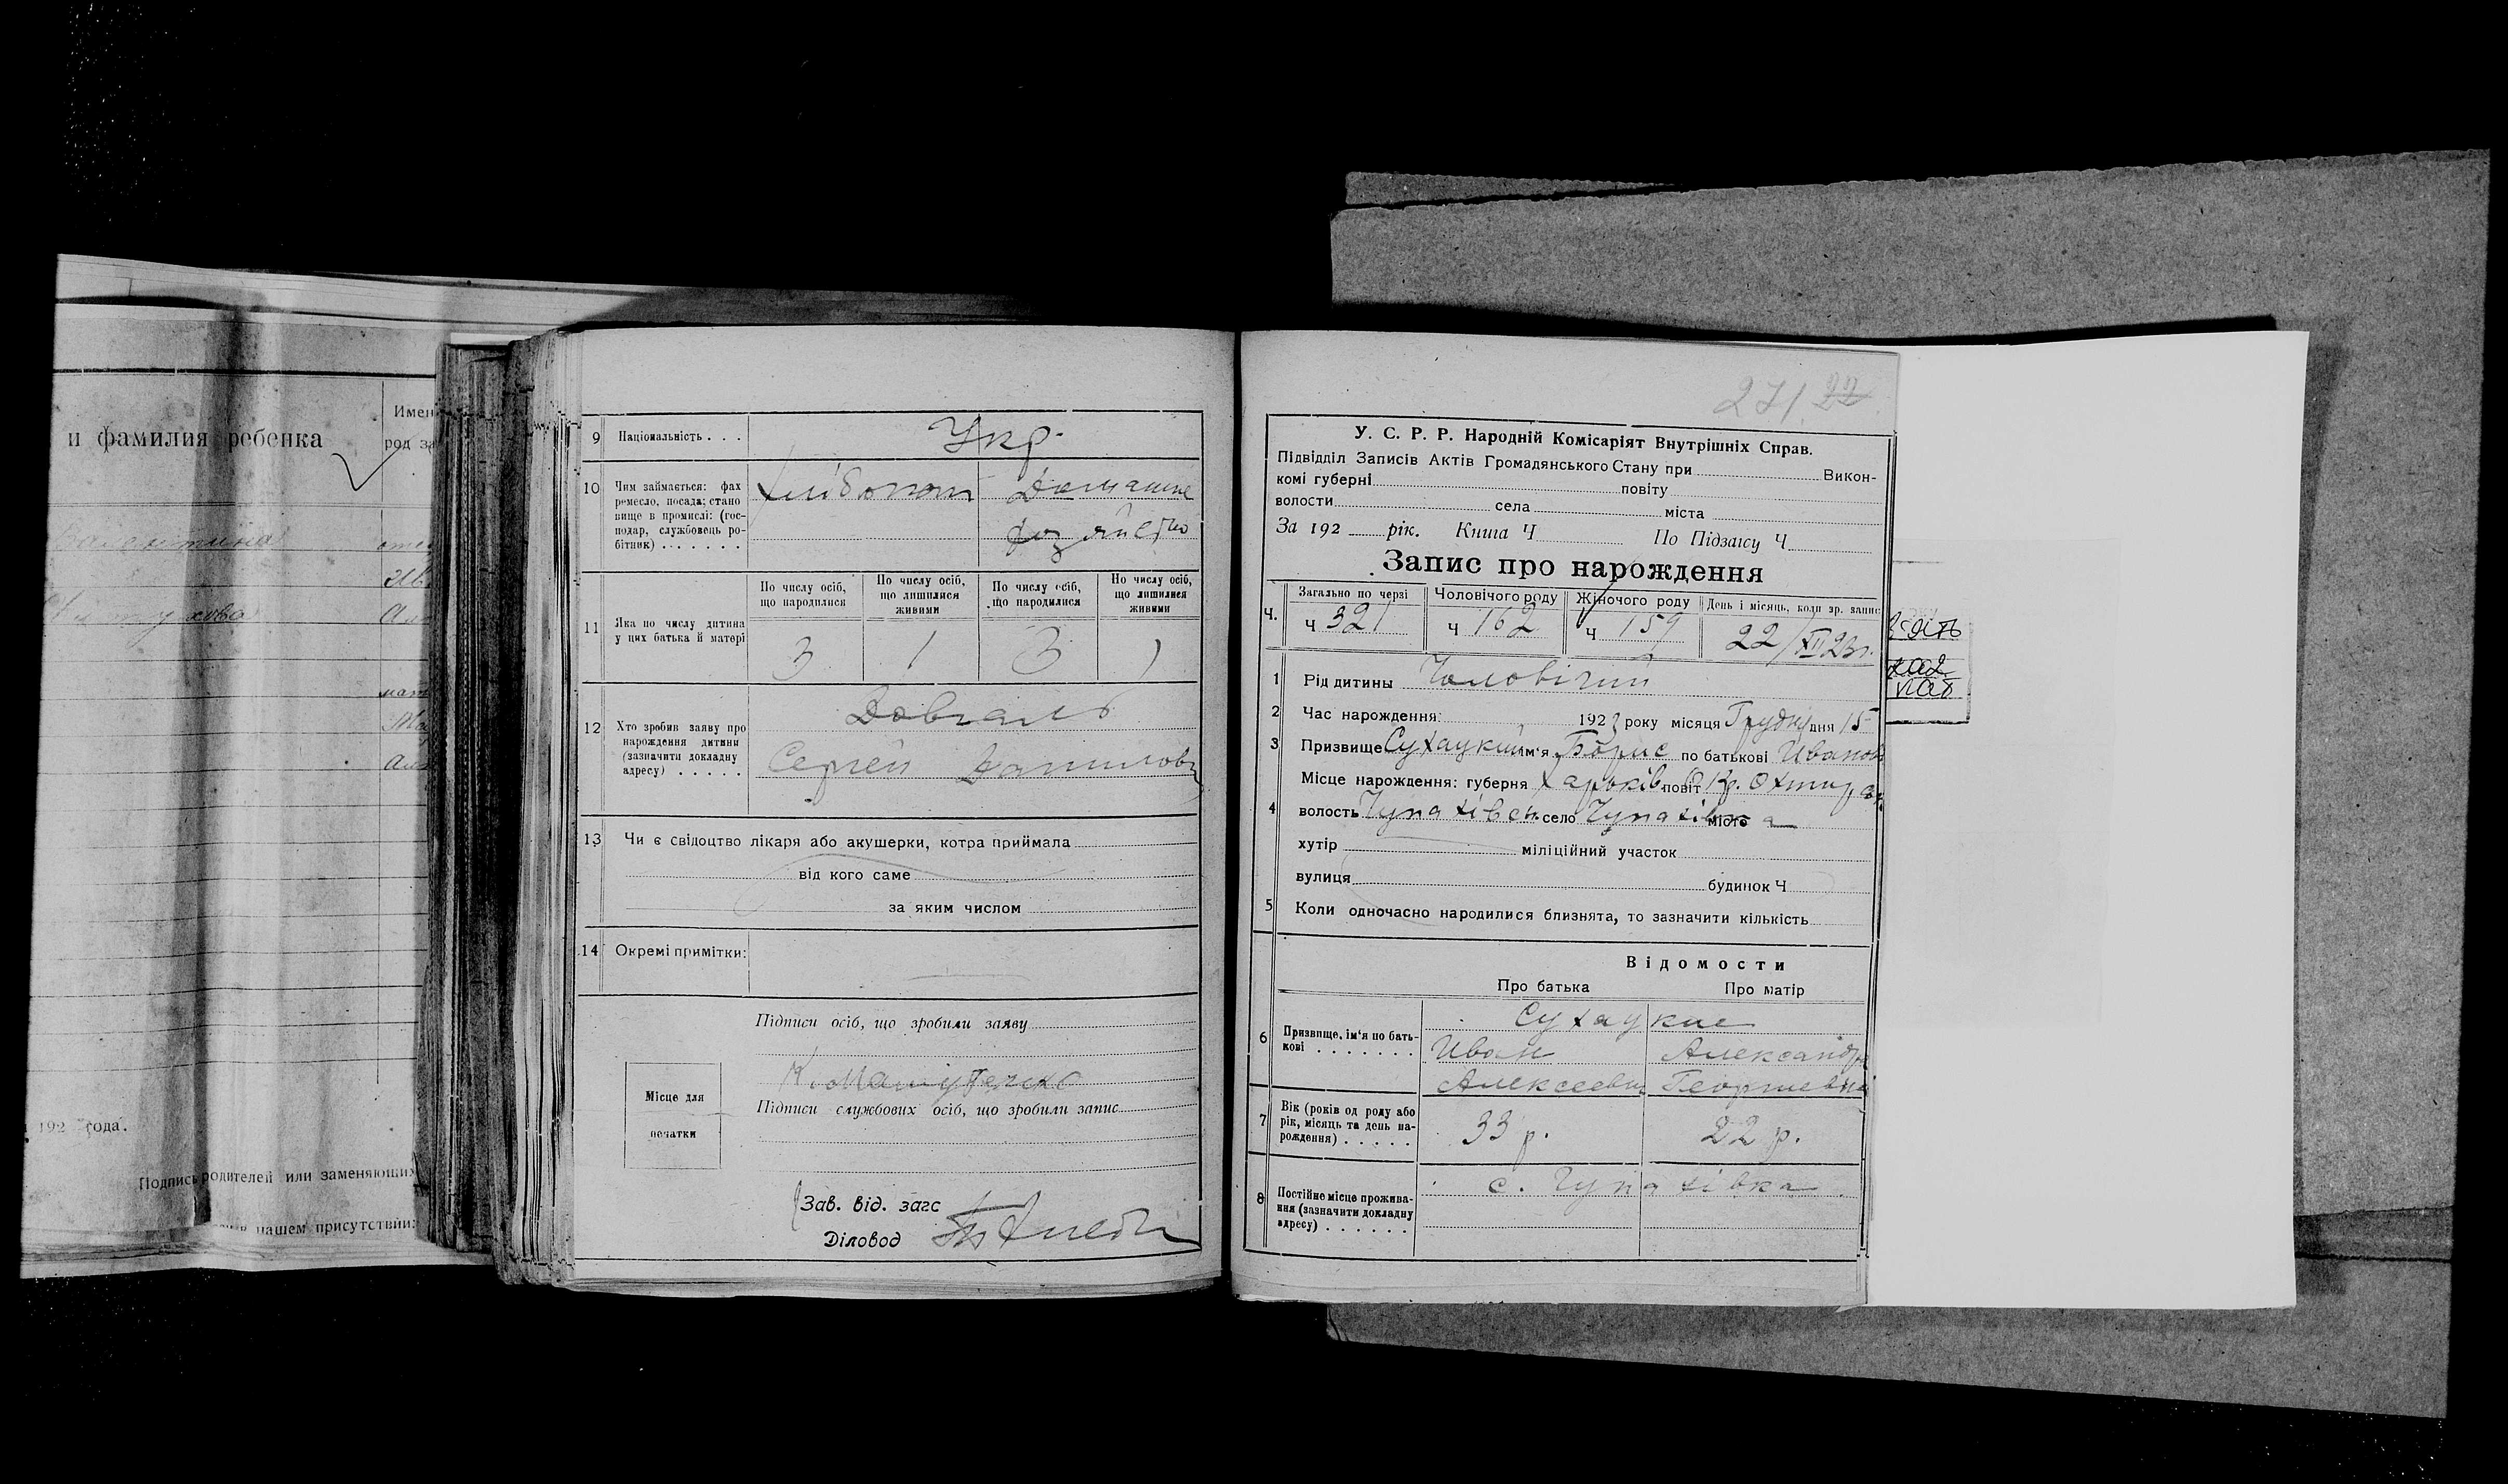 и фамилия ребенка
Имен
род за
192 года.
Подпись родителей или заменяющих
в нашем присутствии:
9 Національність . . . Укр.
10 Чим займається: фах
ремесло, посада; стано
вище в промислі: (гос-
подар, службовець ро-
бітник) . . . . . . .
Хлібороб Домашнє
хозяйство
11 Яка по числу дитина
у цих батька й матері
По числу осіб,
що народилися
По числу осіб,
що лишилися
живими
По числу осіб,
що народилися
По числу осіб,
що лишилися
живими
3 1 3 1
12 Хто зробив заяву про
нарождення дитини
(зазначити докладну
адресу) . . . . .
Довгаль
Сергей Данилови
13 Чи є свідоцтво лікаря або акушерки, котра приймала
від кого саме
за яким числом
14 Окремі примітки:
Підписи осіб, що зробили заяву
Місце для
печатки
Підписи службових осіб, що зробили запис
Зав. від. загс
Діловод
271 22
У. С. Р. Р. Народній Комісаріят Внутрішніх Справ.
Підвідділ Записів Актів Громадянського Стану при Викон-
комі губерні повіту
волости села міста
За 192 рік. Книга Ч По Підзагсу Ч
Запис про нарождення
Ч. Загально по черзі Чоловічого роду Жіночого роду День і місяць, коли зр. запис
Ч 321 Ч 162 Ч 159 22/XII 23 г.
1 Рід дитины Чоловічий
2 Час нарождення: 1923 року місяця Грудня дня 15
3 Призвище Сухацкий ім'я Борис по батькові Иванов
4 Місце нарождення: губерня Харьків. повіт Окр. Охтир
волость Чупахівськ. село Чупахівка місто
хутір міліційний участок
вулиця будинок Ч
5 Коли одночасно народилися близнята, то зазначити кількість
Відомости
Про батька Про матір
6 Призвище, ім'я по бать-
кові . . . . . . .
Сухацкие
Иван Александра
Алексеевич Георгиевна
7 Вік (років од роду або
рік, місяць та день на-
рождення) . . . . .
33 р. 22 р.
8 Постійне місце прожива-
ння (зазначити докладну
адресу) . . . . . .
с. Чупахівка